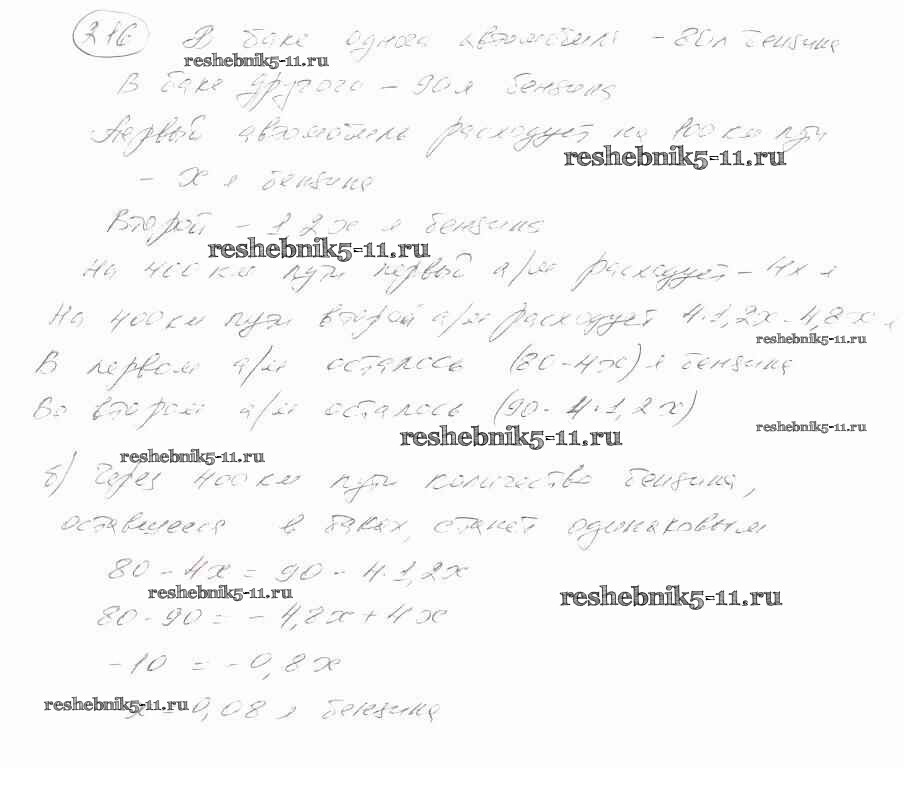 216 В баке одного автомобиля – 80л бензина
reshebnik5-11.ru
В баке другого – 90 л бензина
Первый автомобиль расходует на 100 км пути
reshebnik5-11.ru
– x л бензина
Второй – 1,2x л бензина
reshebnik5-11.ru
На 400 км пути первый а/м расходует – 4x л
На 400 км пути второй а/м расходует 4·1,2x - 4,8x л
reshebnik5-11.ru
В первом а/м осталось (80-4x) л бензина
Во втором а/м осталось (90 - 4·1,2x)
reshebnik5-11.ru
reshebnik5-11.ru
reshebnik5-11.ru
б) Через 400 км пути количество бензина,
оставшееся в баках, станет одинаковым
80 - 4x = 90 - 4·1,2x
reshebnik5-11.ru
reshebnik5-11.ru
80 - 90 = - 4,8x + 4x
-10 = -0,8x
reshebnik5-11.ru
x = 0,08 л бензина